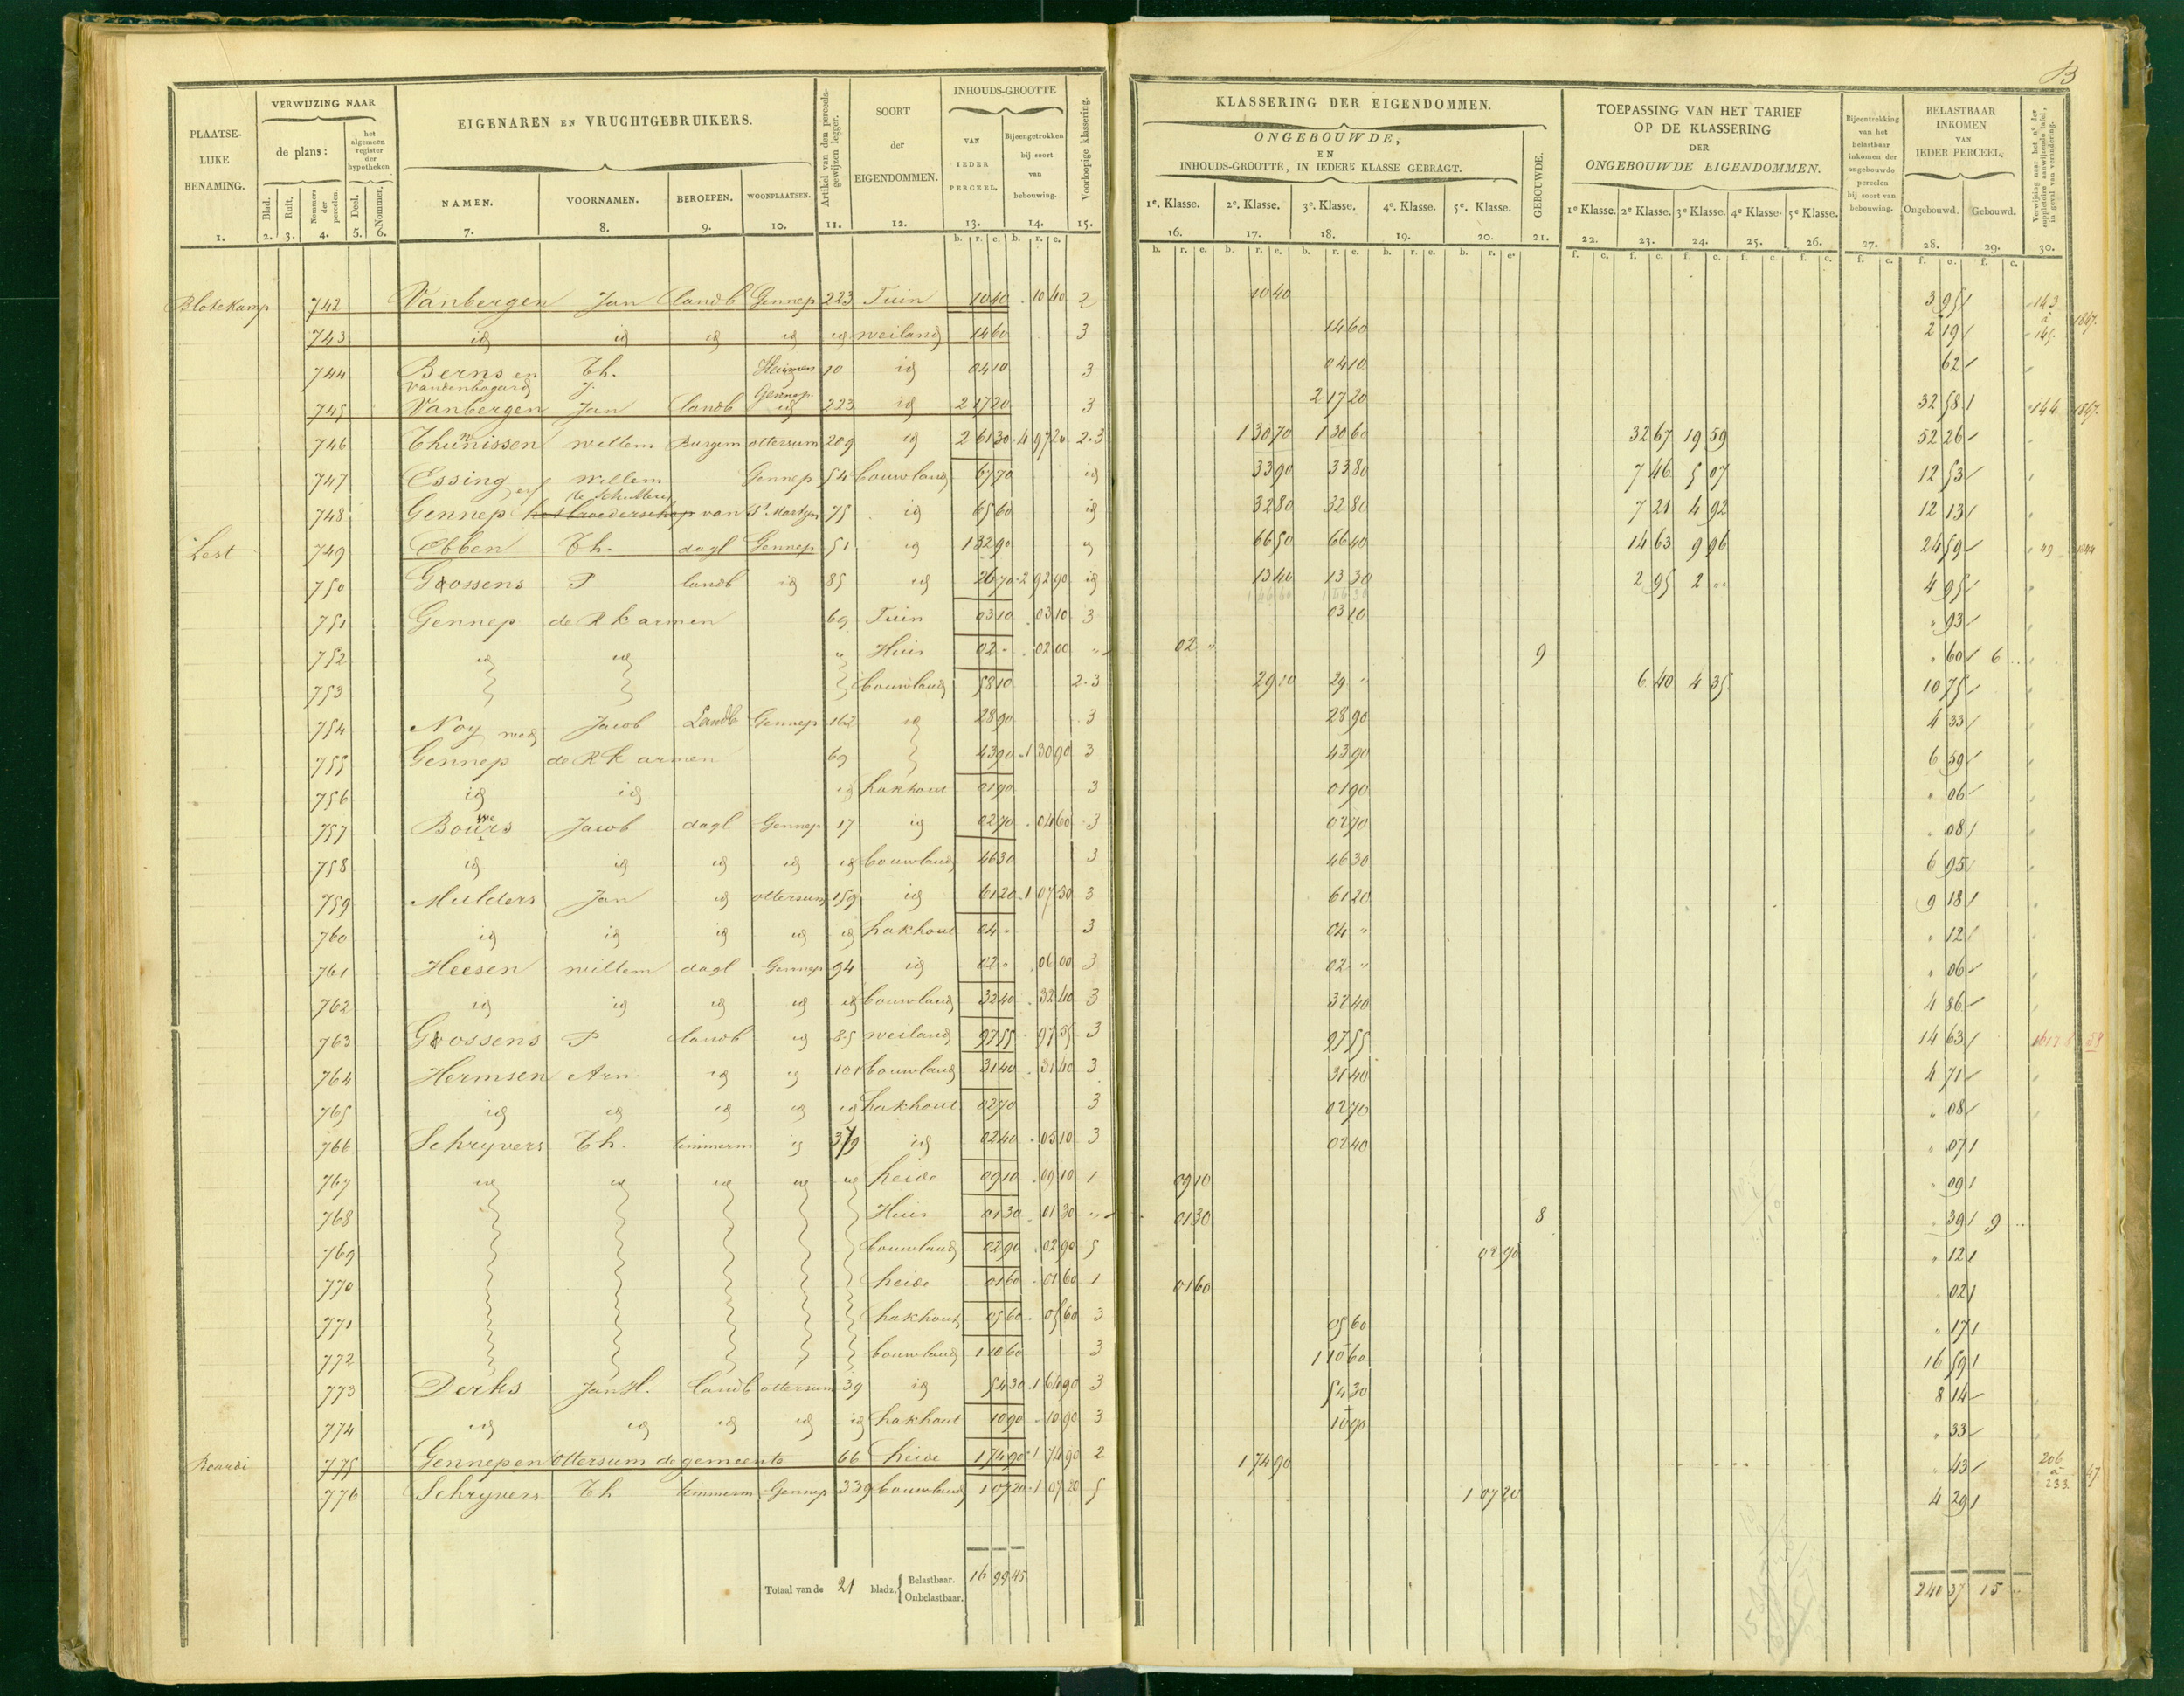 B
PLAATSE-LIJKE BENAMING. 1.
VERWIJZING NAAR
de plans:
Blad. 2. Ruit. 3. Nommers der perceelen. 4.
het algemeen register der hypotheken
Deel. 5. Nommer. 6.
EIGENAREN EN VRUCHTGEBRUIKERS.
NAMEN. 7. VOORNAMEN. 8. BEROEPEN. 9. WOONPLAATSEN. 10.
Artikel van den perceels-gewijzen legger. 11.
SOORT der EIGENDOMMEN. 12.
INHOUDS-GROOTTE
VAN IEDER PERCEEL. 13.
Bijeengetrokken bij soort van bebouwing. 14.
Voorloopige klassering. 15.
KLASSERING DER EIGENDOMMEN.
ONGEBOUWDE,
EN
INHOUDS-GROOTTE, IN IEDERE KLASSE GEBRAGT.
1e. Klasse. 16. 2e. Klasse. 17. 3e. Klasse. 18. 4e. Klasse. 19. 5e. Klasse. 20.
GEBOUWDE. 21.
TOEPASSING VAN HET TARIEF
OP DE KLASSERING
DER
ONGEBOUWDE EIGENDOMMEN.
1e Klasse. 22. 2e Klasse. 23. 3e Klasse. 24. 4e Klasse. 25. 5e Klasse. 26.
Bijeentrekking van het belastbaar inkomen der ongebouwde perceelen bij soort van bebouwing. 27.
BELASTBAAR INKOMEN VAN IEDER PERCEEL.
Ongebouwd. 28. Gebouwd. 29.
Verwijzing naar het no. der suppletoire aanwijzende tafel, in geval van verandering. 30.
Blotekamp 742 Vanbergen Jan Landb Gennep 223 Tuin 10 40 10 40 2 10 40 3 95 143
743 id id id id id weiland 14 60 3 14 60 2 19 à 145 1847
744 Berns en Th. Heijmen 10 id 04 10 3 04 10 62
Vandenbogard J. Gennep
745 Vanbergen Jan landb id 223 id 2 17 20 3 2 17 20 32 58 144 1847
746 Theunissen willem Burgem ottersum 209 id 2 61 30 4 97 20 2.3 1 30 70 1 30 60 32 67 19 59 52 26
747 Essing erf willem Gennep 54 bouwland 67 70 id 33 90 33 80 7 46 5 07 12 53
de schutterij
748 Gennep het broederschap van St. Martyn 75 id 65 60 id 32 80 32 80 7 21 4 92 12 13
Lest 749 Ebben Th. dagl Gennep 51 id 1 32 90 id 66 50 66 40 14 63 9 96 24 59 49 1844
750 Goossens P landb id 85 id 26 70 2 92 90 id 13 40 13 30 2 95 2 " 4 95
751 Gennep de R k armen 69 Tuin 03 10 03 10 3 03 10 " 93
752 id id " Huis 02 " 02 00 " 02 " 9 " 60 6 "
753 bouwland 58 10 2.3 29 10 29 " 6 40 4 35 10 75
754 Noy wed Jacob Landb Gennep 162 id 28 90 3 28 90 4 33
755 Gennep de R k armen 69 43 90 1 30 90 3 43 90 6 59
756 id id id hakhout 01 90 3 01 90 " 06
757 Bouws Jacob dagl Gennep 17 id 02 70 04 60 3 02 70 " 08
758 id id id id id bouwland 46 30 3 46 30 6 95
759 Mulders Jan id ottersum 159 id 61 20 1 07 50 3 61 20 9 18
760 id id id id id hakhout 04 " 3 04 " " 12
761 Heesen willem dagl Gennep 94 id 02 " 06 00 3 02 " " 06
762 id id id id id bouwland 32 40 32 40 3 32 40 4 86
763 Goossens P landb id 85 weiland 97 55 97 55 3 97 55 14 63
764 Hermsen Arn. id id 101 bouwland 31 40 31 40 3 31 40 4 71
765 id id id id id hakhout 02 70 3 02 70 " 08
766 Schryvers Th. timmerm id 379 id 02 40 05 10 3 02 40 " 07
767 id id id id id heide 09 10 09 10 1 09 10 " 09
768 Huis 01 30 01 30 " 01 30 8 " 39 9 "
769 bouwland 02 90 02 90 5 02 90 " 12
770 heide 01 60 01 60 1 01 60 " 02
771 hakhout 05 60 05 60 3 05 60 " 17
772 bouwland 1 10 60 3 1 10 60 16 59
773 Derks Jan H. landb ottersum 39 id 54 30 1 64 90 3 54 30 8 14
774 id id id id id hakhout 10 90 10 90 3 10 90 " 33
775 Gennep en Ottersum de gemeente 66 heide 1 74 90 1 74 90 2 1 74 90 " 43 206 à 233 47
776 Schryvers Th timmerm Gennep 339 bouwland 1 07 20 1 07 20 5 1 07 20 4 29
Totaal van de 21 bladz. { Belastbaar. 16 99 45 240 37 15 "
Onbelastbaar.